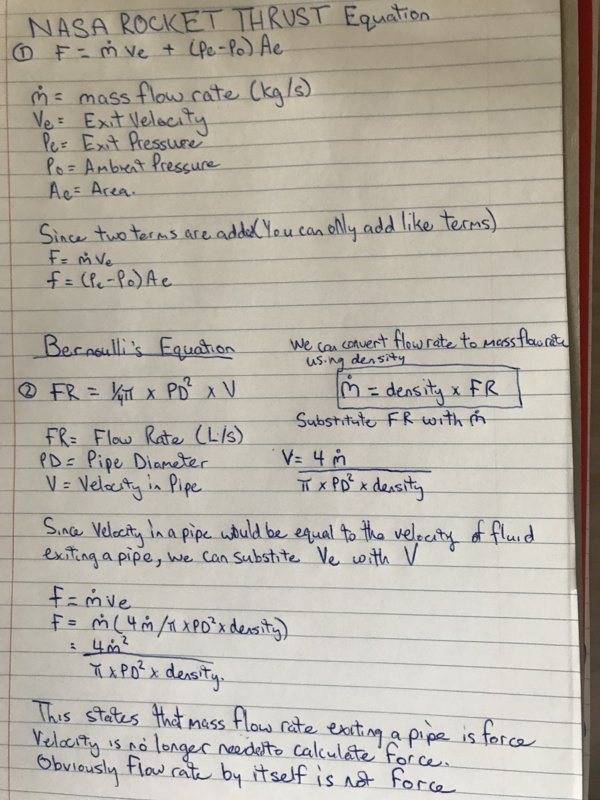 NASA ROCKET THRUST Equation
① F = ṁ Ve + (Pe-Po) Ae
ṁ = mass flow rate (kg/s)
Ve = Exit Velocity
Pe = Exit Pressure
Po = Ambient Pressure
Ae = Area.
Since two terms are added (You can only add like terms)
F = ṁ Ve
f = (Pe-Po) Ae
Bernoulli's Equation
② FR = 1/4π x PD² x V
FR = Flow Rate (L/s)
PD = Pipe Diameter
V = Velocity in Pipe
We can convert flow rate to mass flow rate
using density
ṁ = density x FR
Substitute FR with ṁ
V = 4 ṁ
π x PD² x density
Since Velocity in a pipe would be equal to the velocity of fluid
exiting a pipe, we can substite Ve with V
F = ṁ Ve
F = ṁ (4 ṁ / π x PD² x density)
= 4ṁ²
π x PD² x density.
This states that mass flow rate exiting a pipe is force
Velocity is no longer needed to calculate force.
Obviously Flow rate by itself is not force